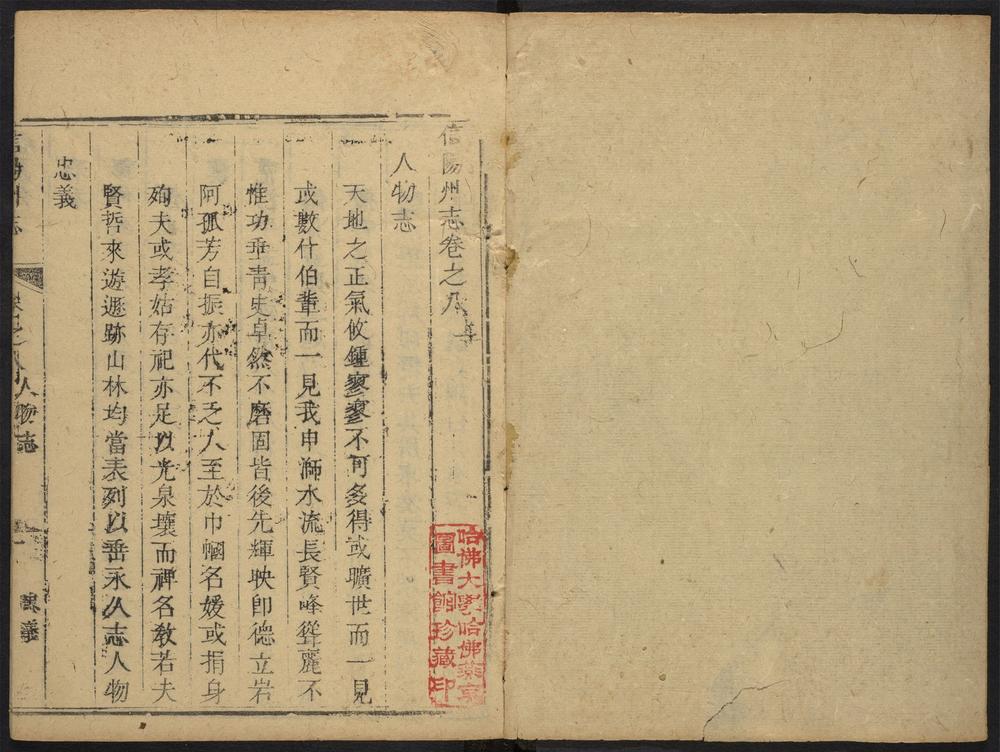 信陽州志卷之八
人物志
天地之正氣攸鍾寥寥不可多得或曠世而一見
或數什伯輩而一見我申溮水流長賢峰聳麗不
惟功垂青史卓然不磨固皆後先輝映即德立岩
阿孤芳自振亦代不乏人至於巾幗名媛或捐身
殉夫或孝姑存祀亦足以光泉壤而禆名教若夫
賢哲來遊遯跡山林均當表列以垂永久志人物
忠義
信陽州志
卷之八人物志
一
忠義
哈佛大學哈佛燕京
圖書館珍藏印